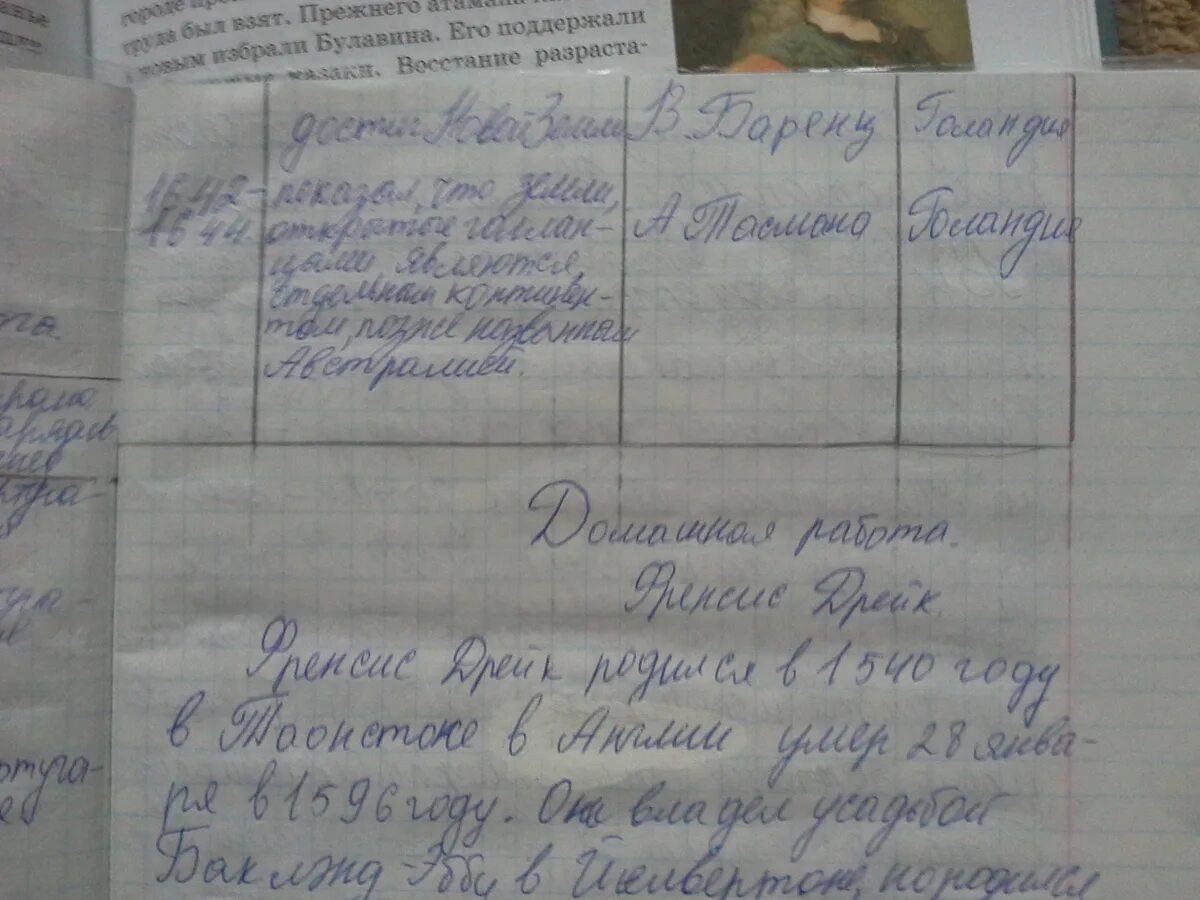 городе
труда был взят. Прежнего атамана
новым избрали Булавина. Его поддержали
казаки. Восстание разраста-
достиг Новой Земли В. Баренц Голандия
1642- показал, что земли,
1644. открытые голлан- А Тасмана Голандия
цами, являются,
отдельным континен-
том, позже названным
Австралией.
Домашная работа.
Френсис Дрейк.
Френсис Дрейк родился в 1540 году
в Таонстоке в Англии умер 28 янва-
ря в 1596 году. Он владел усадьбой
Баклэнд-Эббу в Йелвертоне, но родился